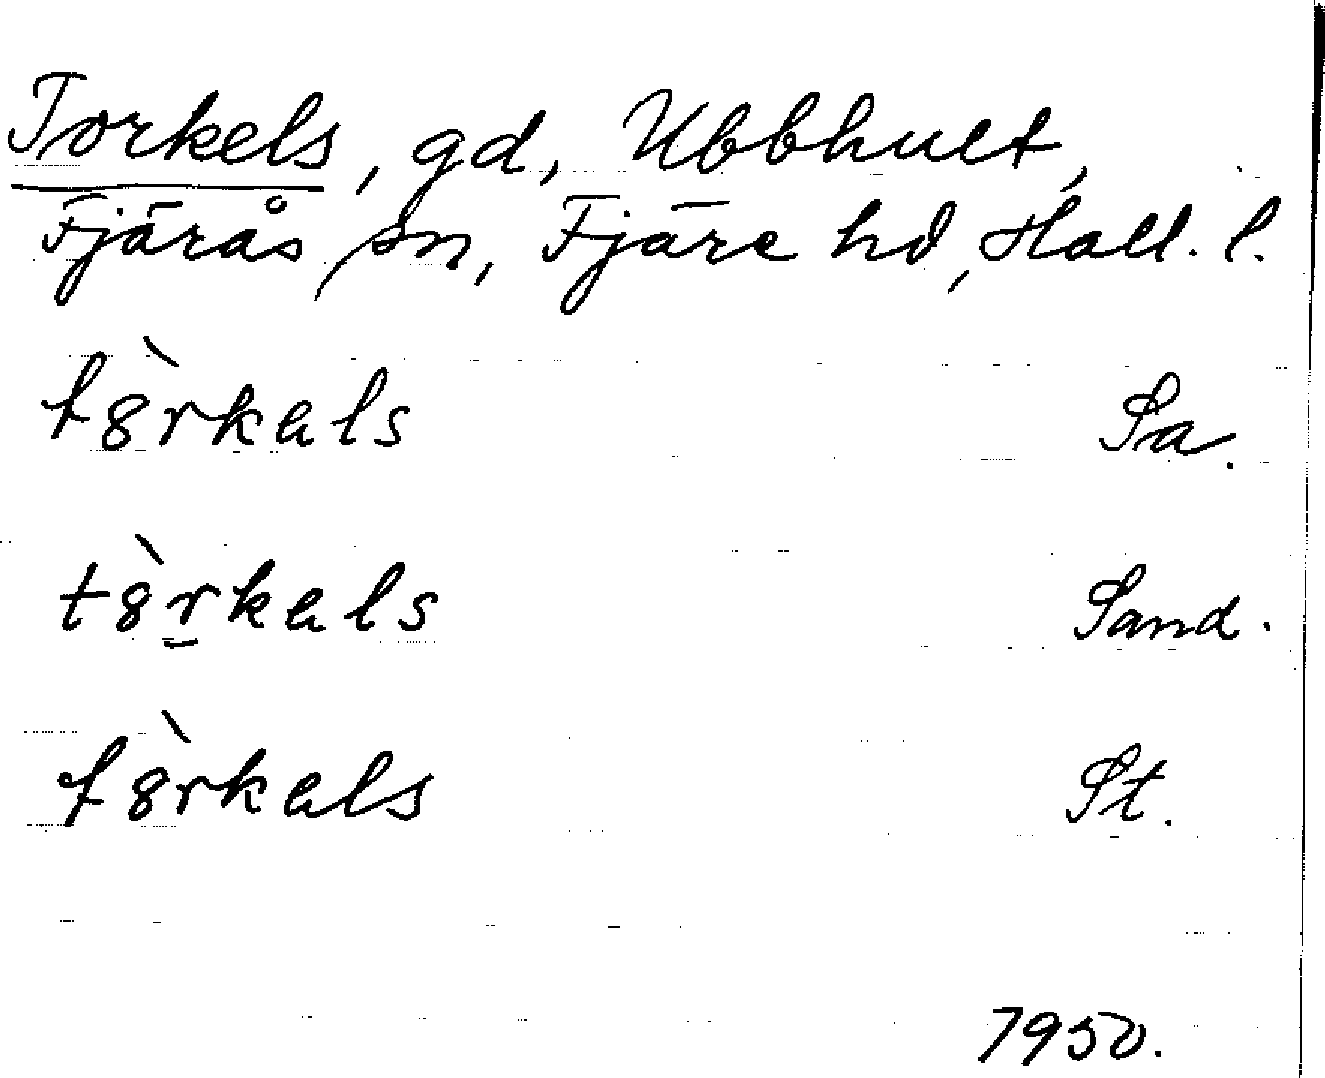 Torkels, gd, Ubbhult,
Fjärås sn, Fjäre hd, Hall. l.
tȣ̀rkals Sa.
tȣ̀r̠kals Sand.
tȣ̀rkals St.
1950.